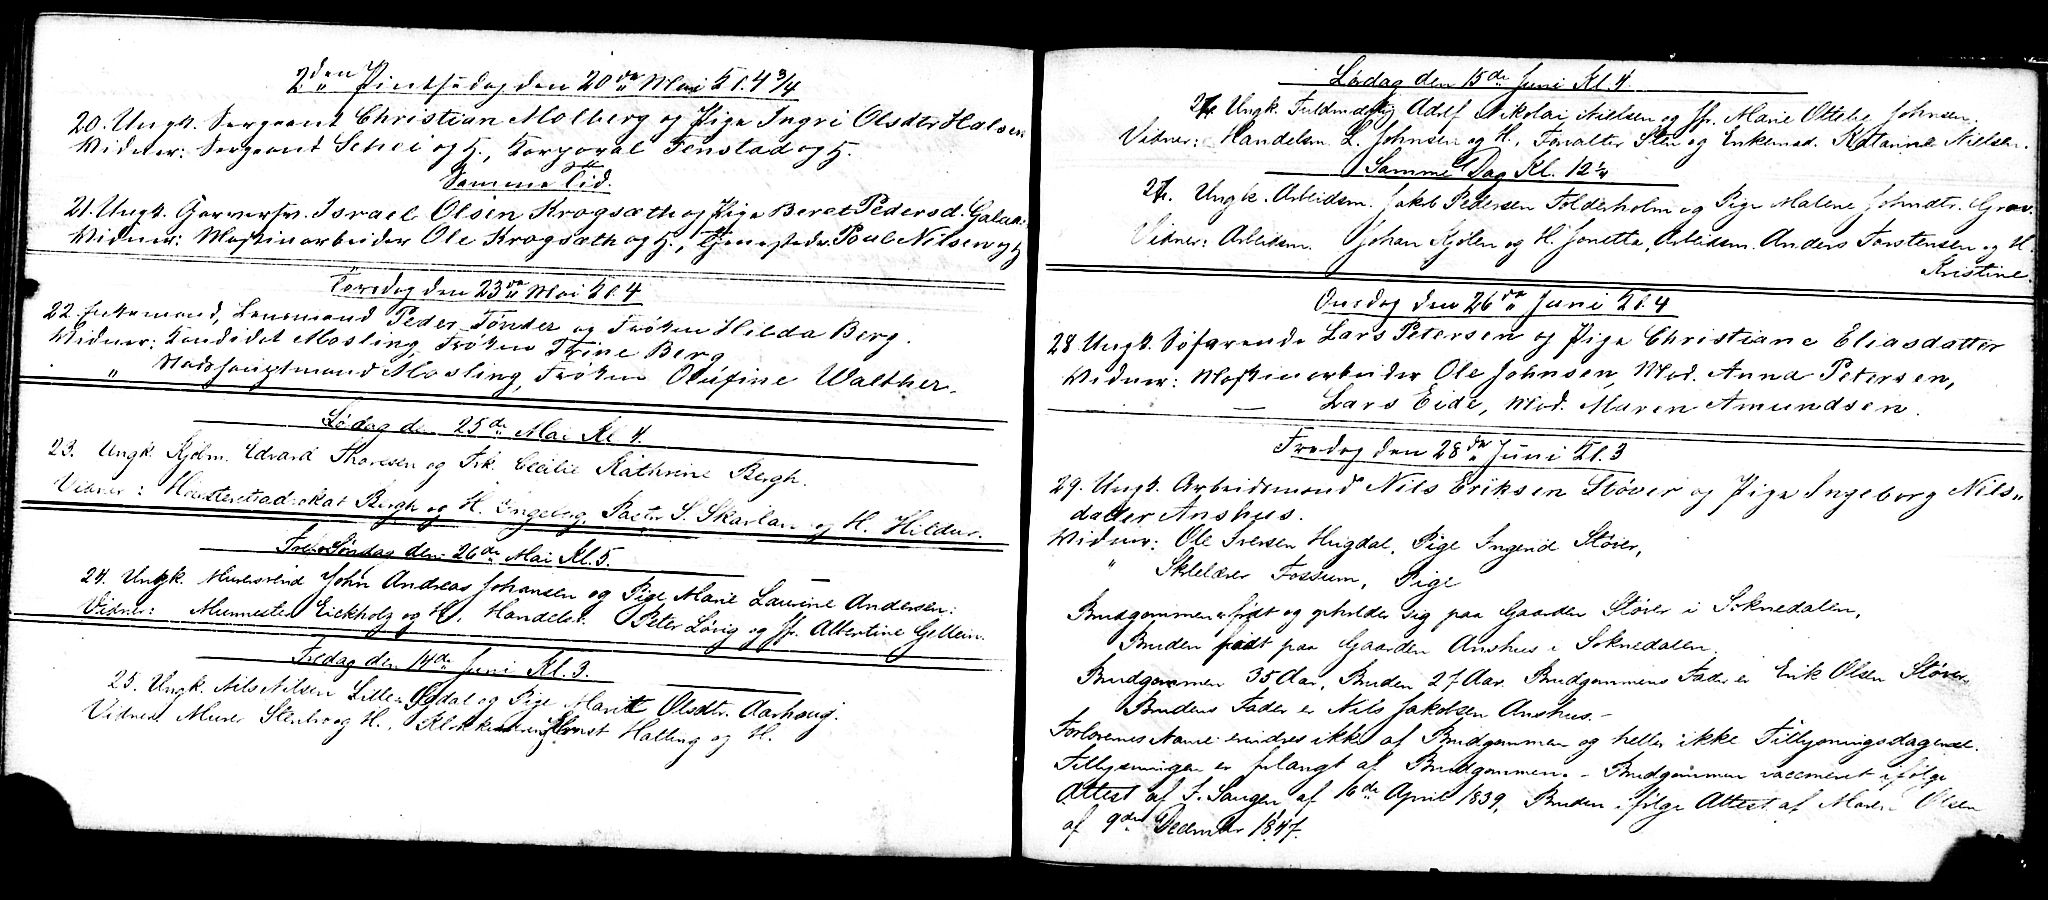 2den Pintsedag den 20de Mai Kl. 4 3/4
20. Ungk. Sergeant Christian Molberg og Pige Ingri Olsdtr Halsen
Vidner: Sergeant Schei og H., Korporal Fenstad og H.
Samme Tid.
21. Ungk. Garversv. Israel Olsen Krogsæth og Pige Beret Pedersd. Galaa
Vidner: Maskinarbeider Ole Krogsæth og H., Paul Nilsen og H
Torsdag den 23de Mai Kl. 4
22. Enkemand, Lensmand Peder Tønder og Frøken Hilda Berg.
Vidner: Kandidat Mosling, Frøken Trine Berg
" Mosling, Frøken Olufine Walther.
Lødag den 25de Mai Kl 4.
23. Ungk. Kjøbm. Edvard Thoresen og Frk. Cecilie Kathrine Bergh.
Vidner: Bergh og H. Ingeborg, Pastor S. Skarland og H. Hildur.
Søndag den 26de Mai Kl. 5.
24. Ungk. Murersvend John Andreas Johansen og Pige Marie Laurine Andersen.
Vidner: Eickholz og H, Handelsb. Peter Løvig og Jfr. Albertine Gellein.
Fredag den 14de Juni Kl. 3.
25. Ungk. Nils Nilsen og Pige Marit Olsdtr. Aarhaug.
Vidner. Murer og H., Halling og H.
Lørdag den 15de Juni Kl. 4.
Ungk. Fuldmægtig Adolf Nikolai Nielsen og Jfr. Marie Ottelie Johnsen.
Vidner: Handelsm. L. Johnsen og H., Forvalter Sten og Enkemad. Nielsen.
Samme Dag Kl. 12½
27. Ungk. Arbeidsm. Jakob Pedersen Folderholm og Pige Malene Johndtr. Grav.
Vidner: Arbeidsm. Johan Kjølen og H. Jonetta, Arbeidsm. Anders Torstensen og H.
Kristine.
Onsdag den 26de Juni Kl. 4
28 Ungk. Søfarende Lars Petersen og Pige Christiane Eliasdatter
Vidner: Maskinarbeider Ole Johnsen, Mad. Anna Petersen,
— Lars Eide, Mad. Maren Amundsen.
Fredag den 28de Juni Kl. 3
29. Ungk. Arbeidsmand Nils Eriksen Støver og Pige Ingeborg Nils-
datter Anshus.
Vidner: Ole Iversen Hugdal, Pige Ingerid Støver,
" Skolelærer Fossum, Pige
Brudgommen er født og opholder sig paa Gaarden Støver i Soknedalen,
Bruden født paa Gaarden Anshus i Soknedalen.
Brudgommen 35 Aar, Bruden 27 Aar. Brudgommens Fader er Erik Olsen Støver
Brudens Fader er Nils Jakobsen Anshus.-
Forlovernes Navne erindres ikke af Brudgommen og heller ikke Tillysningsdagene.
Tillysningen er forlangt af Brudgommen. - Brudgommen vaccineret ifølge
Attest af af 16de April 1839, Bruden ifølge Attest af Olsen
af 9de Decmber 1847.